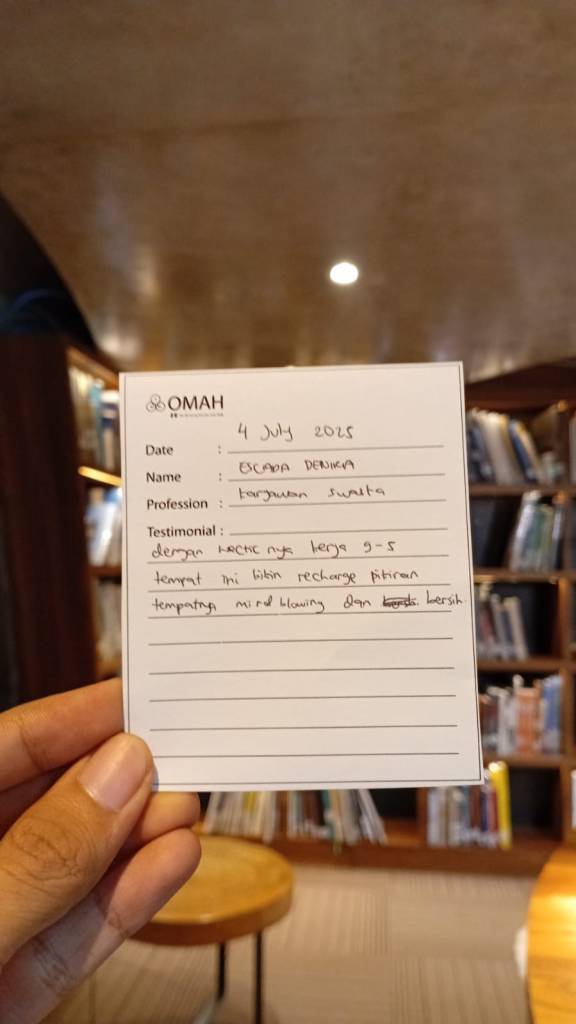 OMAH
Date : 4 July 2025
Name : ESCADA DENIRA
Profession : karyawan swasta
Testimonial :
dengan hectic nya kerja 9-5
tempat ini bikin recharge pikiran
tempatnya mind blowing dan bersih.